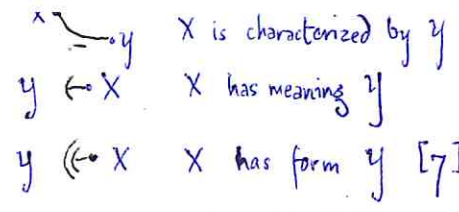 x y X is characterized by y
y ⟵• X X has meaning y
y ((⟵• X X has form y [7]